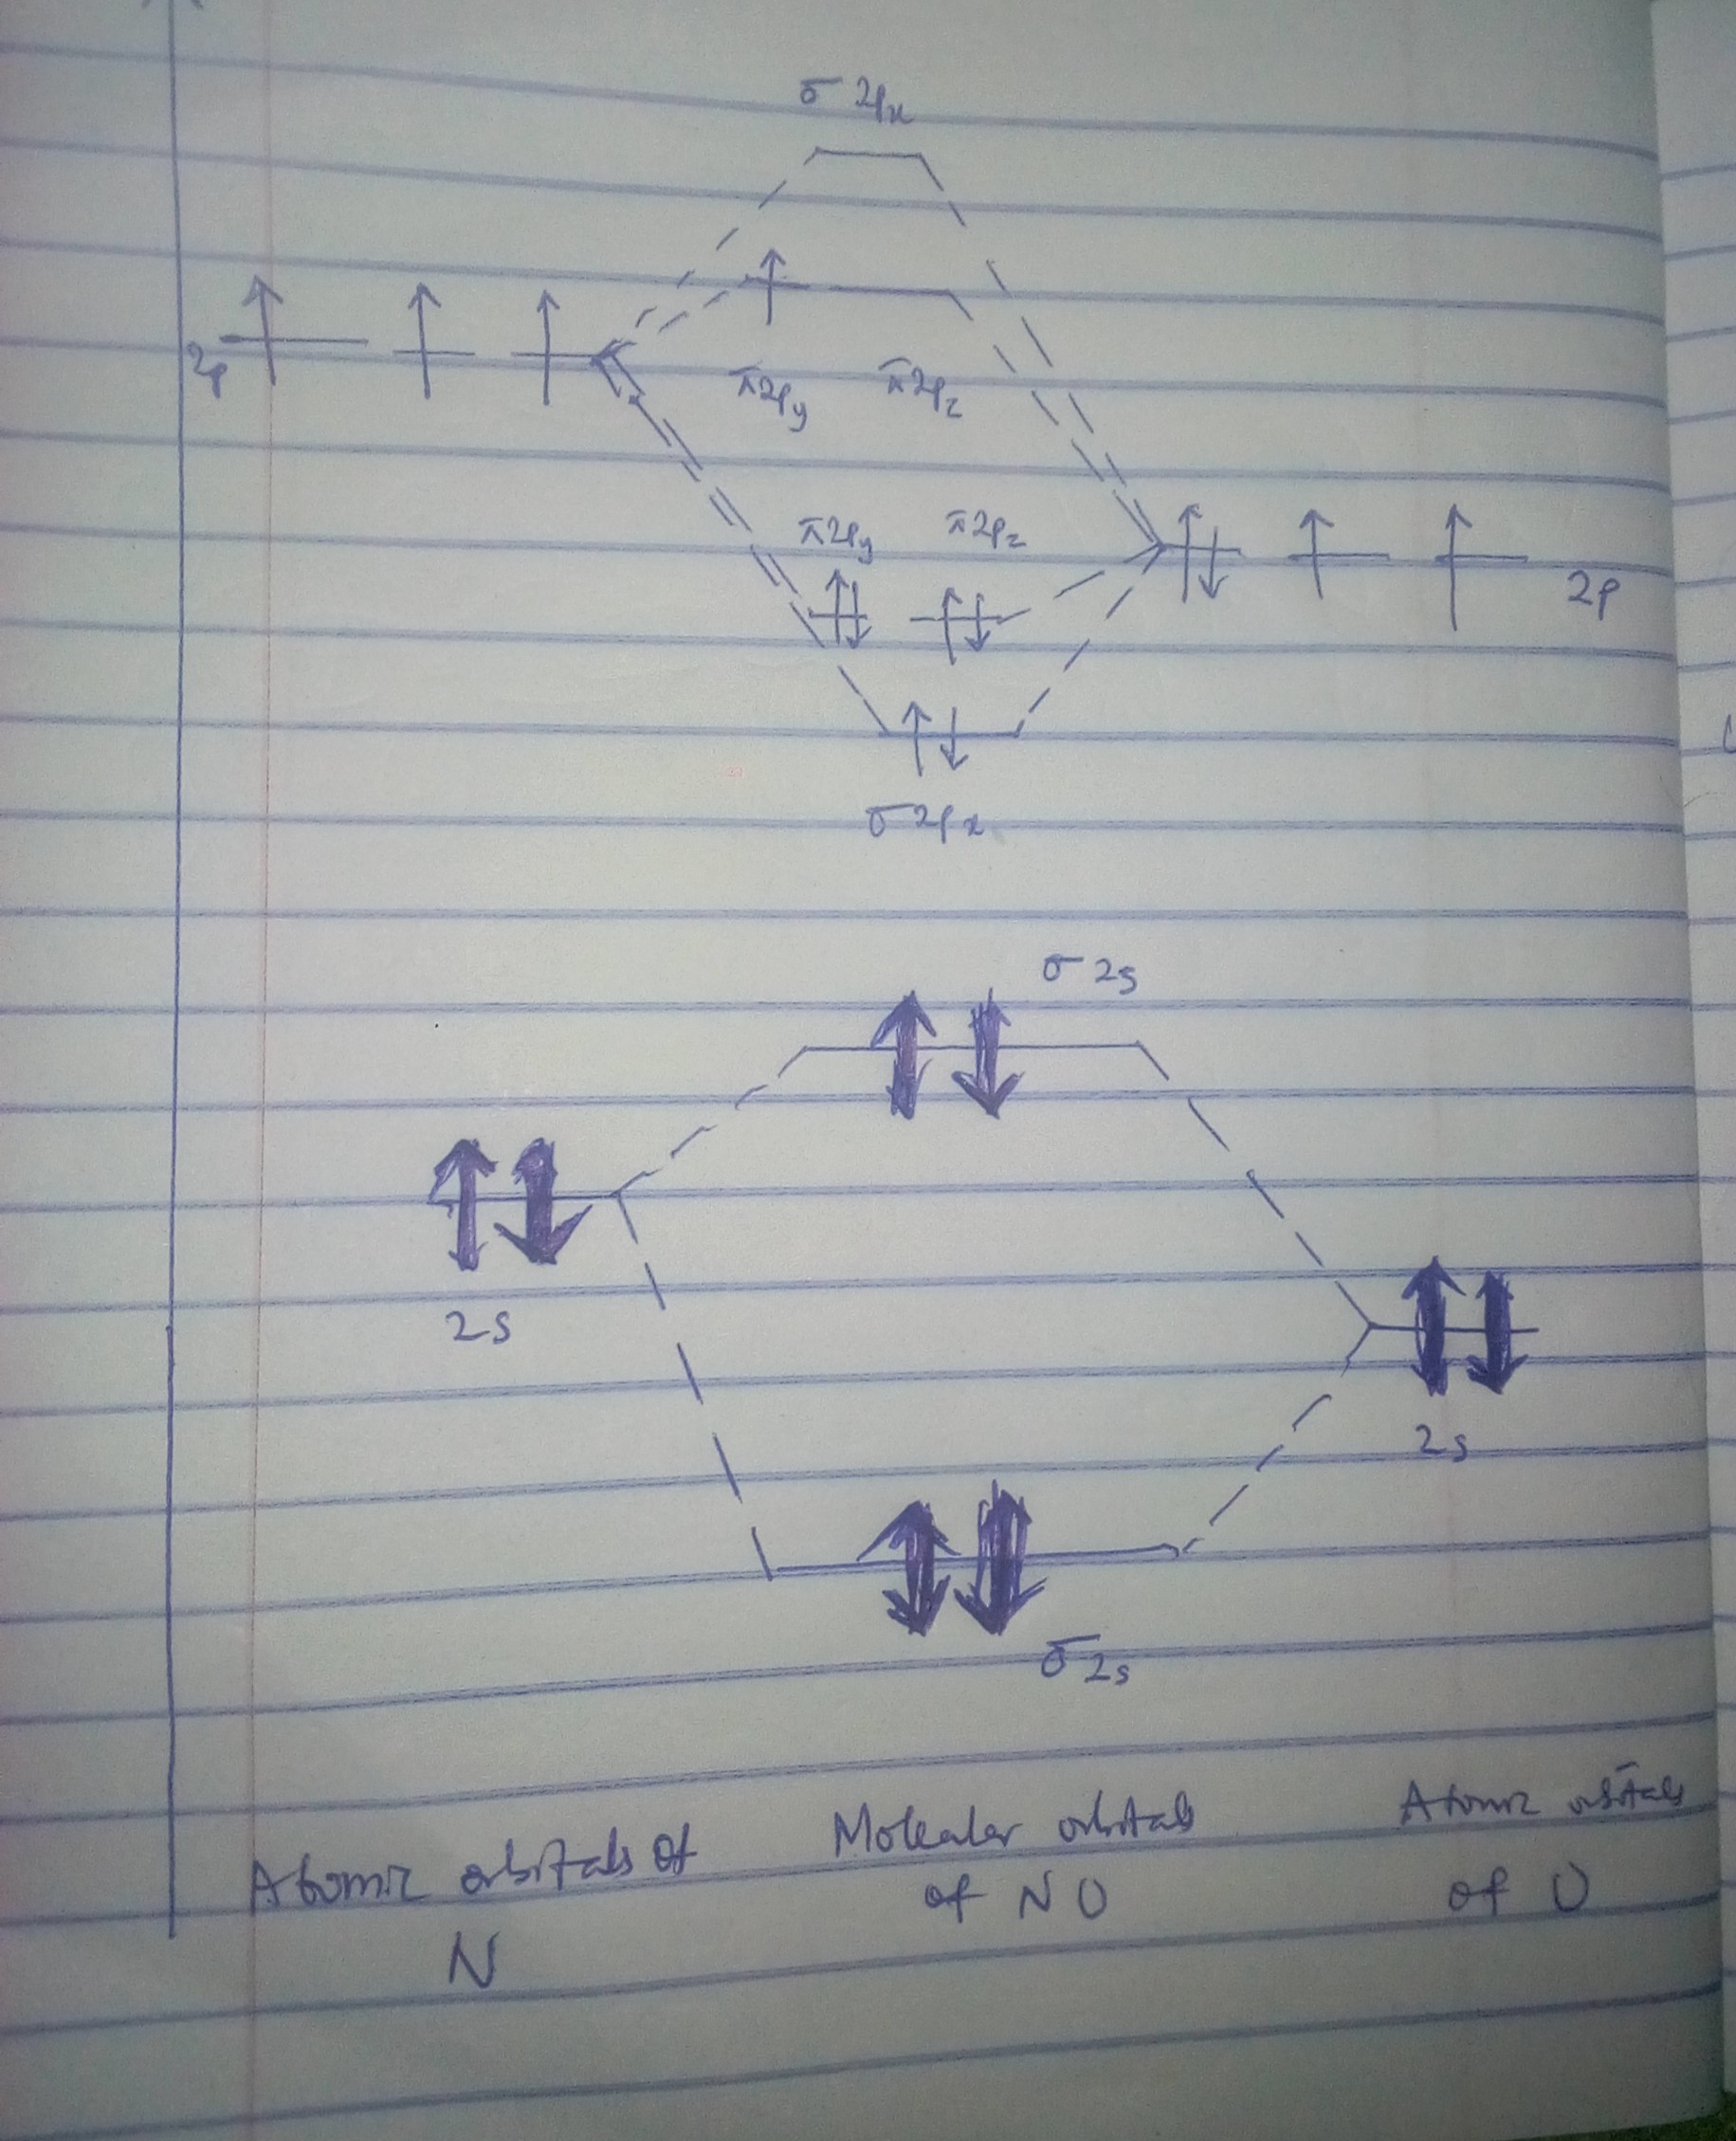 σ 2px
2p
π2py π2pz
π2py π2pz
2p
σ 2px
σ 2s
2s
2s
σ 2s
Atomic orbitals of
N
Molecular orbitals
of NO
Atomic orbitals
of O